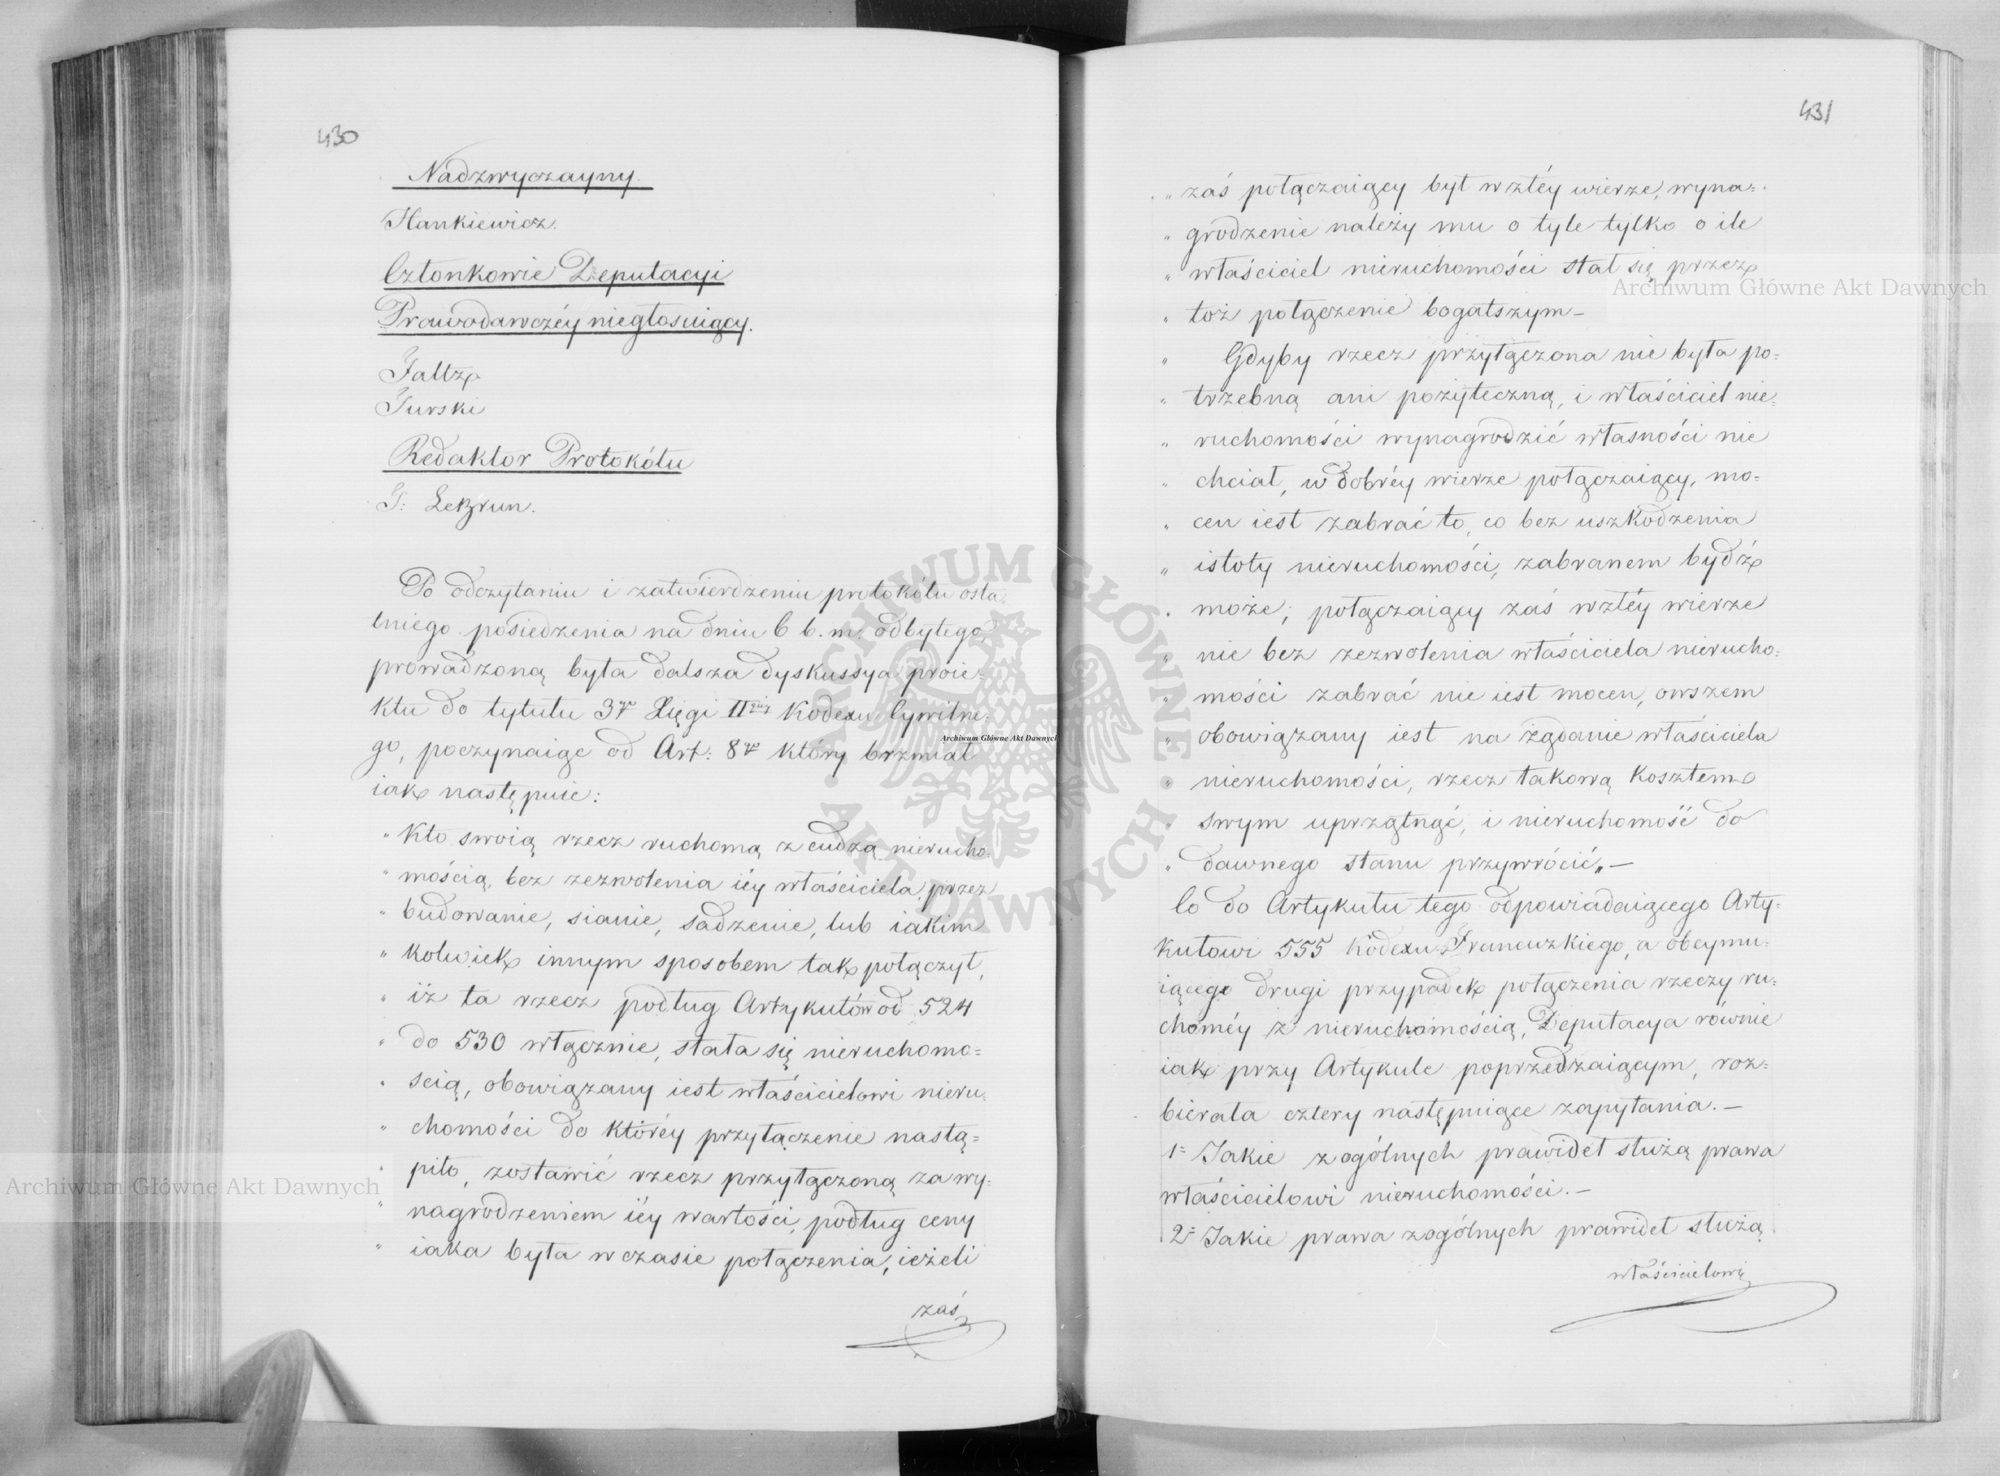 430
Nadzwyczayny.
Hankiewicz.
Członkowie Deputacyi
Prawodawczéy niegłosuiący.
Faltz
Turski
Redaktor Protokółu
LeBrun.
Po odczytaniu i zatwierdzeniu protokółu osta-
tniego posiedzenia na dniu 6 b. m. odbytego,
prowadzoną była dalsza dyskussya proie-
ktu do tytułu 3go Xięgi IIgiéy Kodexu Cywilne-
go, poczynaiąc od Art: 8go który brzmiał
iak następuie:
" Kto swoią rzecz ruchomą z cudzą nierucho-
" mością, bez zezwolenia iéy właściciela, przez
" budowanie, sianie, sadzenie, lub iakim
" kolwiek innym sposobem tak połączył,
" iż ta rzecz podług Artykułów od 524
" do 530 włącznie, stała się nieruchomo=
" ścią, obowiązany iest właścicielowi nieru-
" chomości do któréy przyłączenie nastą=
" piło, zostawić rzecz przyłączoną za wy-
" nagrodzeniem iéy wartości, podług ceny
" iaka była w czasie połączenia; ieżeli
zaś
431
" zaś połączaiący był w złéy wierze, wyna=
" grodzenie należy mu o tyle tylko o ile
" właściciel nieruchomości stał się przez
" toż połączenie bogatszym –
" Gdyby rzecz przyłączona nie była po=
" trzebną ani pożyteczną, i właściciel nie=
" ruchomości wynagrodzić własności nie
" chciał, w dobréy wierze połączaiący, mo=
" cen iest zabrać to, co bez uszkodzenia
" istoty nieruchomości, zabranem bydź
" może; połączaiący zaś w złéy wierze
" nic bez zezwolenia właściciela nierucho=
" mości zabrać nie iest mocen, owszem
" obowiązany iest na żądanie właściciela
" nieruchomości, rzecz takową kosztem
" swym uprzątnąć, i nieruchomość do
" dawnego stanu przywrócić„ –
Co do Artykułu tego odpowiadaiącego Arty=
kułowi 555 Kodexu Francuzkiego, a obeymu=
iącego drugi przypadek połączenia rzeczy ru=
choméy z nieruchomością, Deputacya równie
iak przy Artykule poprzedzaiącym, roz=
bierała cztery następuiące zapytania. –
1= Jakie z ogólnych prawideł służą prawa
właścicielowi nieruchomości. –
2= Jakie prawa z ogólnych prawideł służą
właścicielowi
Archiwum Główne Akt Dawnych
Archiwum Główne Akt Dawnych
Archiwum Główne Akt Dawnych
ARCHIWUM GŁÓWNE · AKT DAWNYCH ·